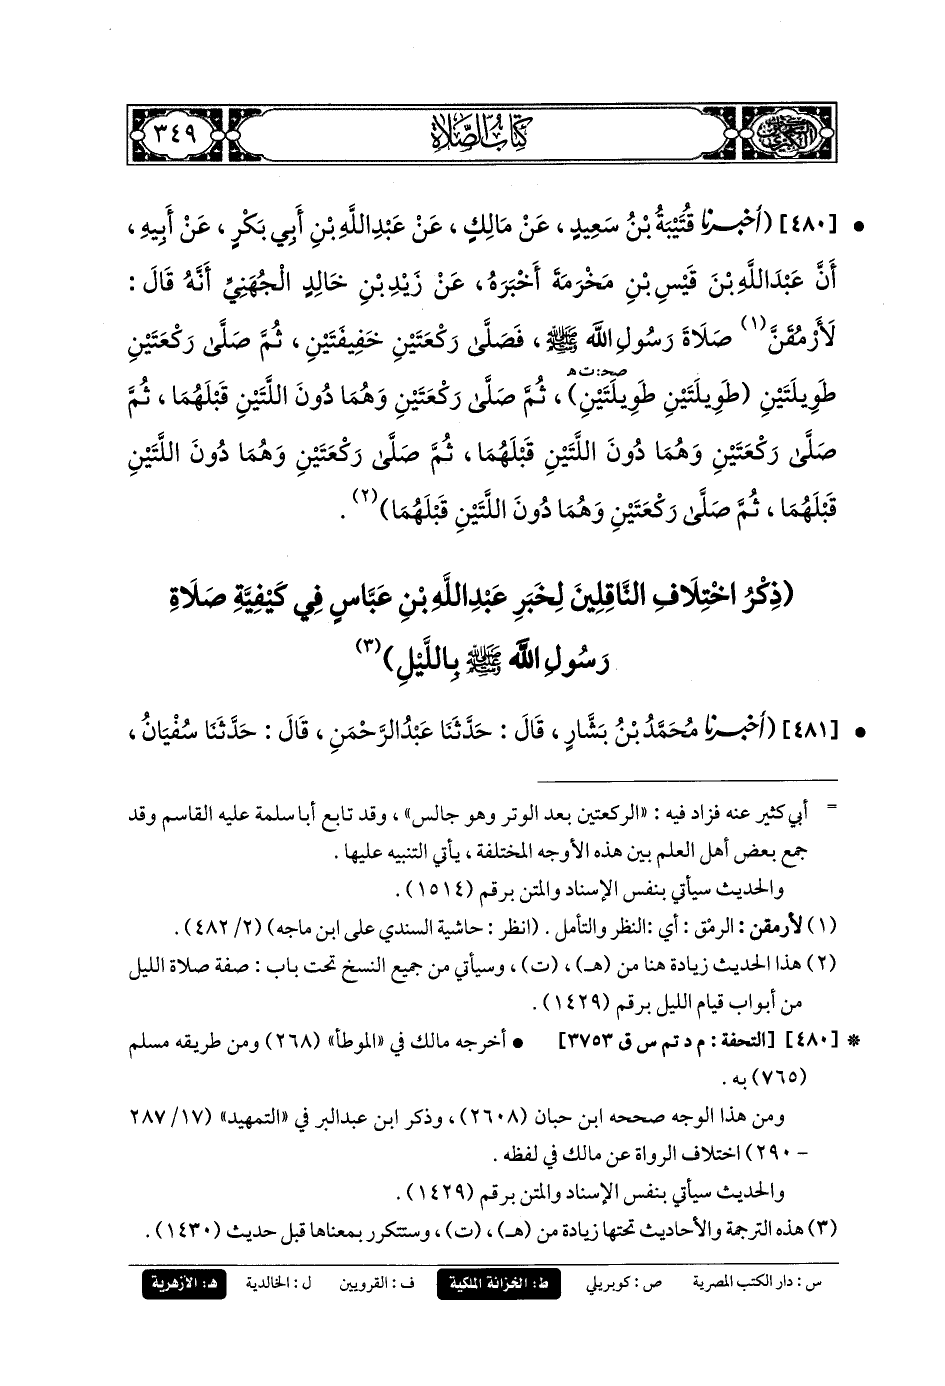 كتاب الصلاة
٣٤٩
• [٤٨٠] (أَخْبَرَنَا قُتَيْبَةُ بْنُ سَعِيدٍ، عَنْ مَالِكٍ، عَنْ عَبْدِاللَّهِ بْنِ أَبِي بَكْرٍ، عَنْ أَبِيهِ،
أَنَّ عَبْدَاللَّهِ بْنَ قَيْسِ بْنِ مَخْرَمَةَ أَخْبَرَهُ، عَنْ زَيْدِ بْنِ خَالِدٍ الْجُهَنِيِّ أَنَّهُ قَالَ:
لَأَرْمُقَنَّ(١) صَلَاةَ رَسُولِ اللَّه ﷺ، فَصَلَّى رَكْعَتَيْنِ خَفِيفَتَيْنِ، ثُمَّ صَلَّى رَكْعَتَيْنِ
صحـ: ت هـ
طَوِيلَتَيْنِ (طَوِيلَتَيْنِ طَوِيلَتَيْنِ)، ثُمَّ صَلَّى رَكْعَتَيْنِ وَهُمَا دُونَ اللَّتَيْنِ قَبْلَهُمَا، ثُمَّ
صَلَّى رَكْعَتَيْنِ وَهُمَا دُونَ اللَّتَيْنِ قَبْلَهُمَا، ثُمَّ صَلَّى رَكْعَتَيْنِ وَهُمَا دُونَ اللَّتَيْنِ
قَبْلَهُمَا، ثُمَّ صَلَّى رَكْعَتَيْنِ وَهُمَا دُونَ اللَّتَيْنِ قَبْلَهُمَا)(٢).
(ذِكْرُ اخْتِلَافِ النَّاقِلِينَ لِخَبَرِ عَبْدِاللَّهِ بْنِ عَبَّاسٍ فِي كَيْفِيَّةِ صَلَاةِ
رَسُولِ اللَّه ﷺ بِاللَّيْلِ)(٣)
• [٤٨١] (أَخْبَرَنَا مُحَمَّدُ بْنُ بَشَّارٍ، قَالَ: حَدَّثَنَا عَبْدُالرَّحْمَنِ، قَالَ: حَدَّثَنَا سُفْيَانُ،
= أبي كثير عنه فزاد فيه: «الركعتين بعد الوتر وهو جالس»، وقد تابع أبا سلمة عليه القاسم وقد
جمع بعض أهل العلم بين هذه الأوجه المختلفة، يأتي التنبيه عليها.
والحديث سيأتي بنفس الإسناد والمتن برقم (١٥١٤).
(١) لأرمقن: الرمْق: أي: النظر والتأمل. (انظر: حاشية السندي على ابن ماجه) (٢/ ٤٨٢).
(٢) هذا الحديث زيادة هنا من (هـ)، (ت)، وسيأتي من جميع النسخ تحت باب: صفة صلاة الليل
من أبواب قيام الليل برقم (١٤٢٩).
* [٤٨٠] [التحفة: م د تم س ق ٣٧٥٣] • أخرجه مالك في «الموطأ» (٢٦٨) ومن طريقه مسلم
(٧٦٥) به.
ومن هذا الوجه صححه ابن حبان (٢٦٠٨)، وذكر ابن عبدالبر في «التمهيد» (١٧/ ٢٨٧
- ٢٩٠) اختلاف الرواة عن مالك في لفظه.
والحديث سيأتي بنفس الإسناد والمتن برقم (١٤٢٩).
(٣) هذه الترجمة والأحاديث تحتها زيادة من (هـ)، (ت)، وستتكرر بمعناها قبل حديث (١٤٣٠).
س: دار الكتب المصرية ص: كوبريلي ط: الخزانة الملكية ف: القرويين ل: الخالدية هـ: الأزهرية